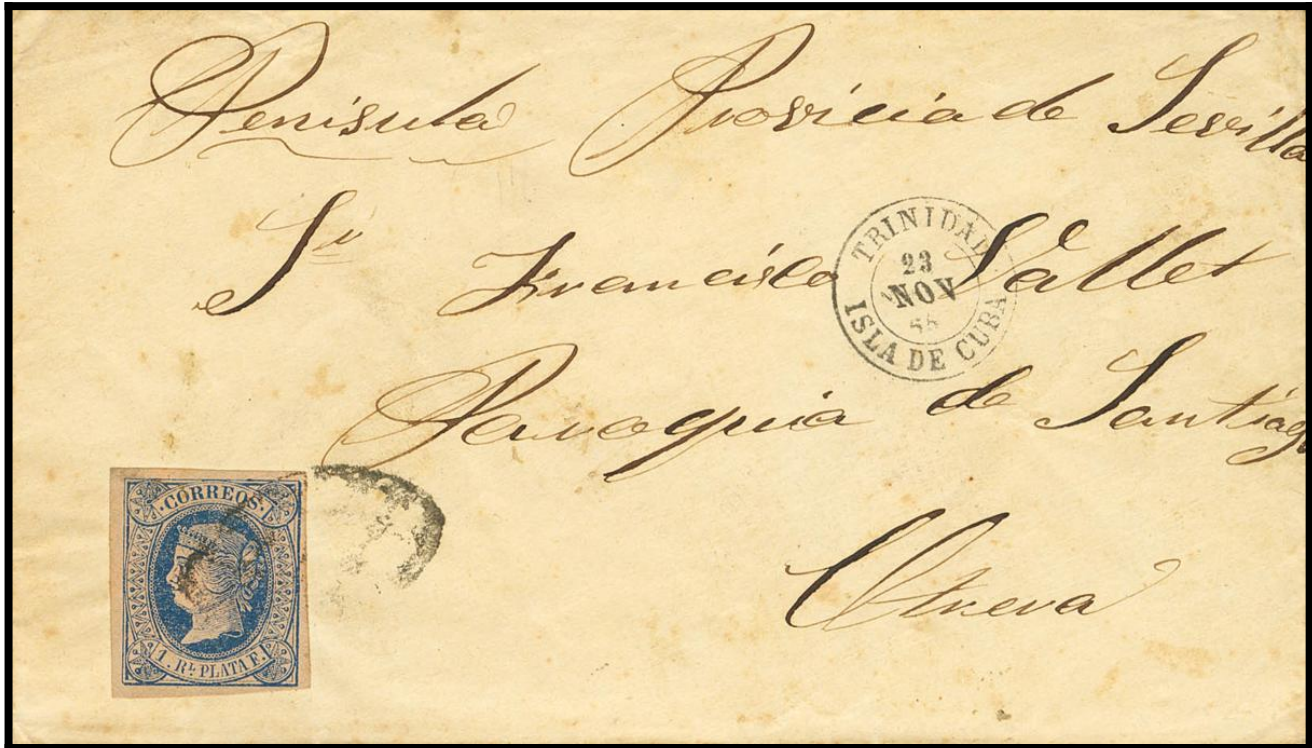 Penisula Provicia de Sevilla
Sr
Francisco Vallet
TRINIDAD
23
NOV
ISLA DE CUBA
Paroquia de Santiago
Utrera
CORREOS
1. Rl. PLATA F.